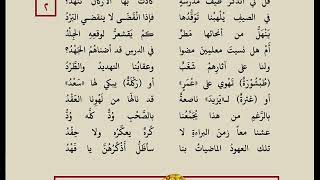 ٢
هل لي أن أتذكر طيف مدرسةٍ كادت بها الأركان تنهدّ؟
في الصيفِ يُلهِبنا توقّدُها فإذا انقضى لا ينقضي البردُ
ينهلُّ من أنحائها مطرٌ كم يقشعرُّ لوقعِهِ الجلدُ
أم هل نسيتَ معلمين مضوا في الدرس قد أضناهمُ الجهدُ؟
ولنا على آثارِهم شغبٌ وعقابنا التهديدُ والطردُ
(طبشورةٌ) تهوي على (عمرٍ) أو (ركلةٌ) يبكي لها (سعدُ)
أو (عثرةٌ) لـ(يزيدَ) ناصعةٌ قد نالها من لهونا العقدُ
بالرغمِ من هذا يجمّعُنا بالصَّحبِ وُدٌّ كلُّه وُدُّ
عشنا معاً زمنَ البراءةِ لا كرهٌ يعكّرُه ولا حقدُ
تلك العهودُ الماضياتُ بنا سأظلُّ أذكرُهنَّ يا فهدُ